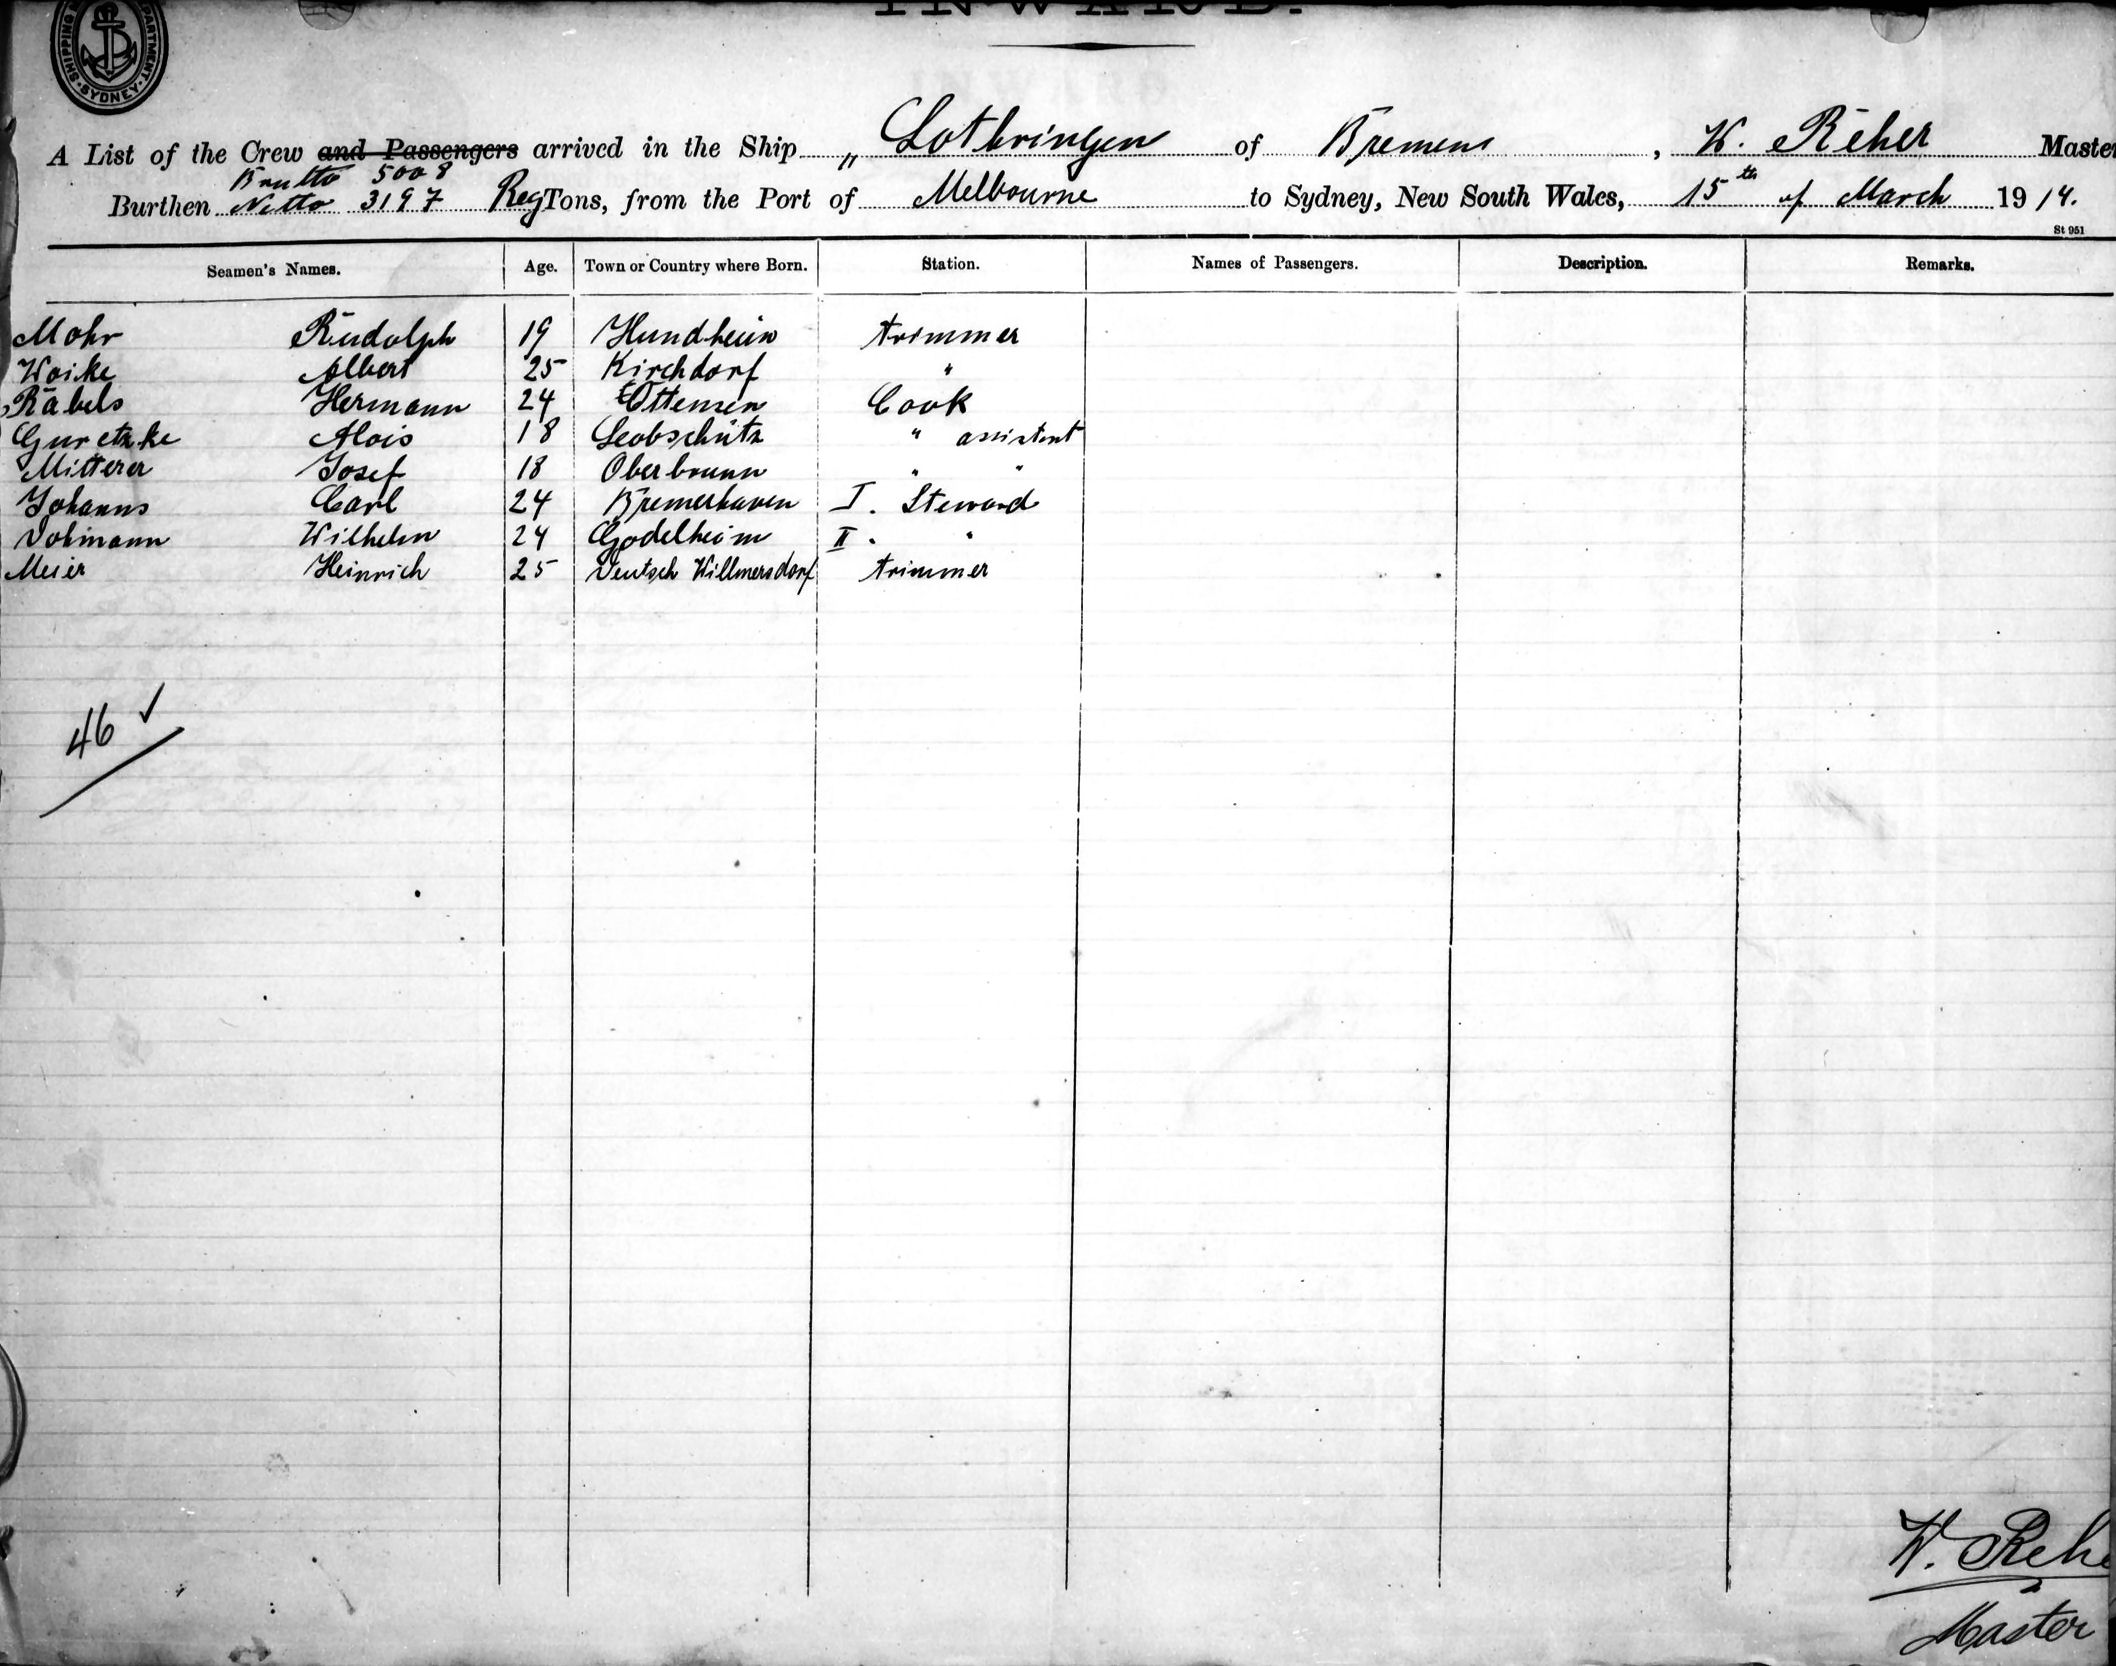 INWARD.
SHIPPING DEPARTMENT SYDNEY
A List of the Crew and Passengers arrived in the Ship „ Lothringen of Bremen, W. Reher Master
Brutto 5008
Burthen Netto 3197 Reg Tons, from the Port of Melbourne to Sydney, New South Wales, 15th of March 1914.
St 951
Seamen's Names. Age. Town or Country where Born. Station. Names of Passengers. Description. Remarks.
Mohr Rudolph 19 Hundheim trimmer
Woike Albert 25 Kirchdorf "
Rabels Hermann 24 Ottensen Cook
Guretzke Alois 18 Leobschütz " assistent
Mitterer Josef 18 Oberbrunn " "
Johanns Carl 24 Bremerhaven I. Steward
Volimann Wilhelm 24 Godelheim II. "
Meier Heinrich 25 Deutsch Willmersdorf trimmer
46 ✓
W. Rehe
Master